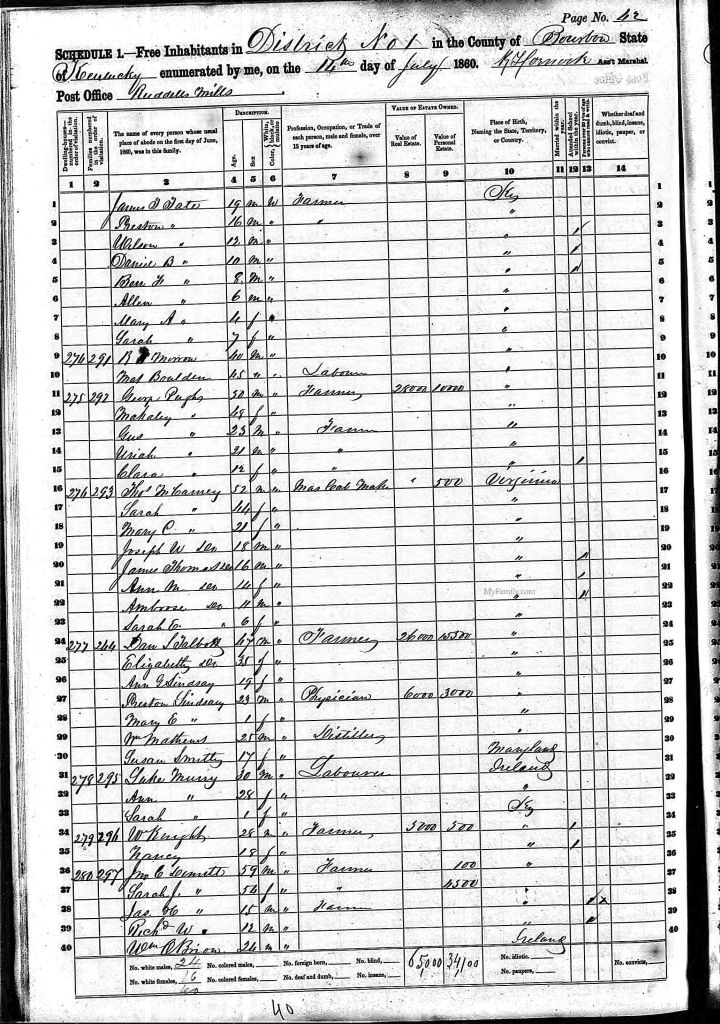 Page No. 42
SCHEDULE 1.—Free Inhabitants in District No 1 in the County of Bourbon State
of Kentucky enumerated by me, on the 14th day of July 1860. Ass't Marshal.
Post Office Ruddells Mills
Dwelling-houses—numbered in the order of visitation.
Families numbered in the order of visitation.
The name of every person whose usual place of abode on the first day of June, 1860, was in this family.
DESCRIPTION.
Age.
Sex.
Color, White, black, or mulatto.
Profession, Occupation, or Trade of each person, male and female, over 15 years of age.
VALUE OF ESTATE OWNED.
Value of Real Estate.
Value of Personal Estate.
Place of Birth, Naming the State, Territory, or Country.
Married within the year.
Attended School within the year.
Whether deaf and dumb, blind, insane, idiotic, pauper, or convict.
1 2 3 4 5 6 7 8 9 10 11 12 13 14
1 James Tate 19 m w Farmer Ky 1
2 Preston " 16 m " " " 2
3 Wilson " 12 m " " 3
4 Daniel B " 10 m " " 4
5 Ben F " 8 m " " 5
6 Allen " 6 m " " 6
7 Mary A " 4 f " " 7
8 Sarah " 7 f " " 8
9 274 291 Morrow 40 m " " 9
10 Boulden 45 " " Labourer " 10
11 275 292 George Pughs 50 m " Farmer 28000 10000 " 11
12 " 48 f " " 12
13 Gus " 23 m " Farm " 13
14 Uriah " 21 m " " " 14
15 Clara " 12 f " " " 15
16 276 293 Thos 52 m " " 500 Virginia 16
17 Sarah " 44 f " " 17
18 Mary C " 21 f " " 18
19 Joseph W Do 18 m " " 19
20 James Thomas Do 16 m " " 20
21 Ann M Do 14 f " " 21
22 Ambrose Do 11 m " " 22
MyFamily.com
23 Sarah E " 6 f " " 23
24 277 244 Dan S Talbott 47 m " Farmer 26000 15500 " 24
25 Elizabeth Do 35 f " " 25
26 Ann G Lindsay 19 f " " 26
27 Preston Lindsay 23 m " Physician 6000 3000 " 27
28 Mary E " 1 f " " 28
29 Wm Mathews 25 m " Distiller " 29
30 Susan Smith 17 f " Maryland 30
31 278 295 Luke Murry 30 m " Labourer Ireland 31
32 Ann " 28 f " " 32
33 Sarah " 1 f " Ky 33
34 279 296 W Knight 28 m " Farmer 5000 500 " 34
35 Nancy 18 f " " 35
36 280 297 Jno C 59 m " Farmer 100 " 36
37 Sarah J " 56 f " " 4500 " 37
38 Jas H " 15 m " Farm " 38
39 Richd W " 12 m " " 39
40 Wm O Brion 24 m " Ireland 40
No. white males, 24 No. colored males, No. foreign born, No. blind, 65,000 34,100 No. idiotic, No. convicts,
No. white females, 16 No. colored females, No. deaf and dumb, No. insane, No. paupers,
40
40